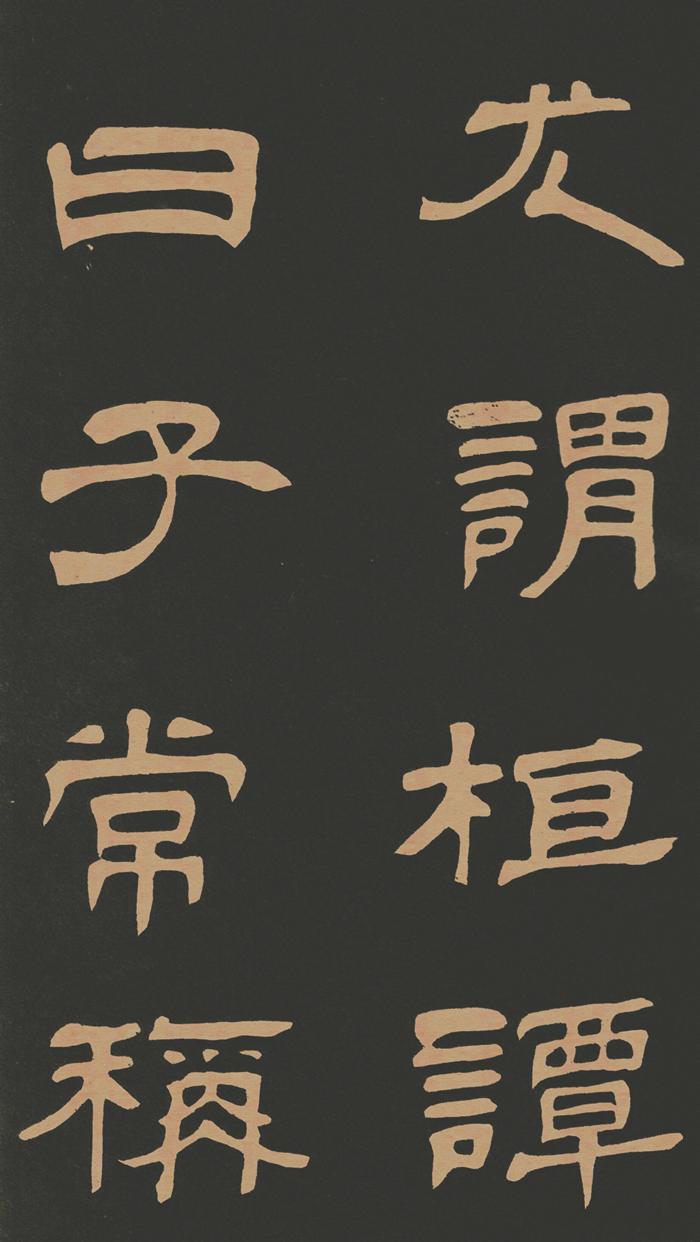 尤謂桓譚
曰子常稱